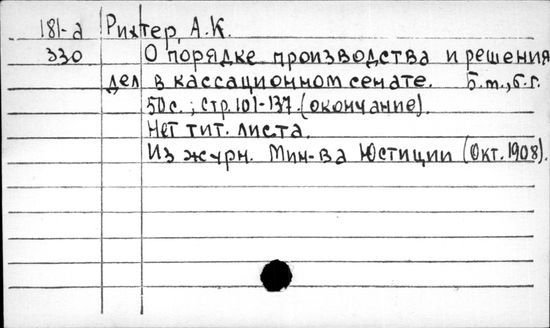 181-а Рихтер, А.К.
330 О порядке производства и решения
дел в кассационном сенате. Б.м., б.г.
50 с.; стр. 101-137. (окончание).
Нет тит. листа.
Из журн. Мин-ва Юстиции (Окт. 1908).